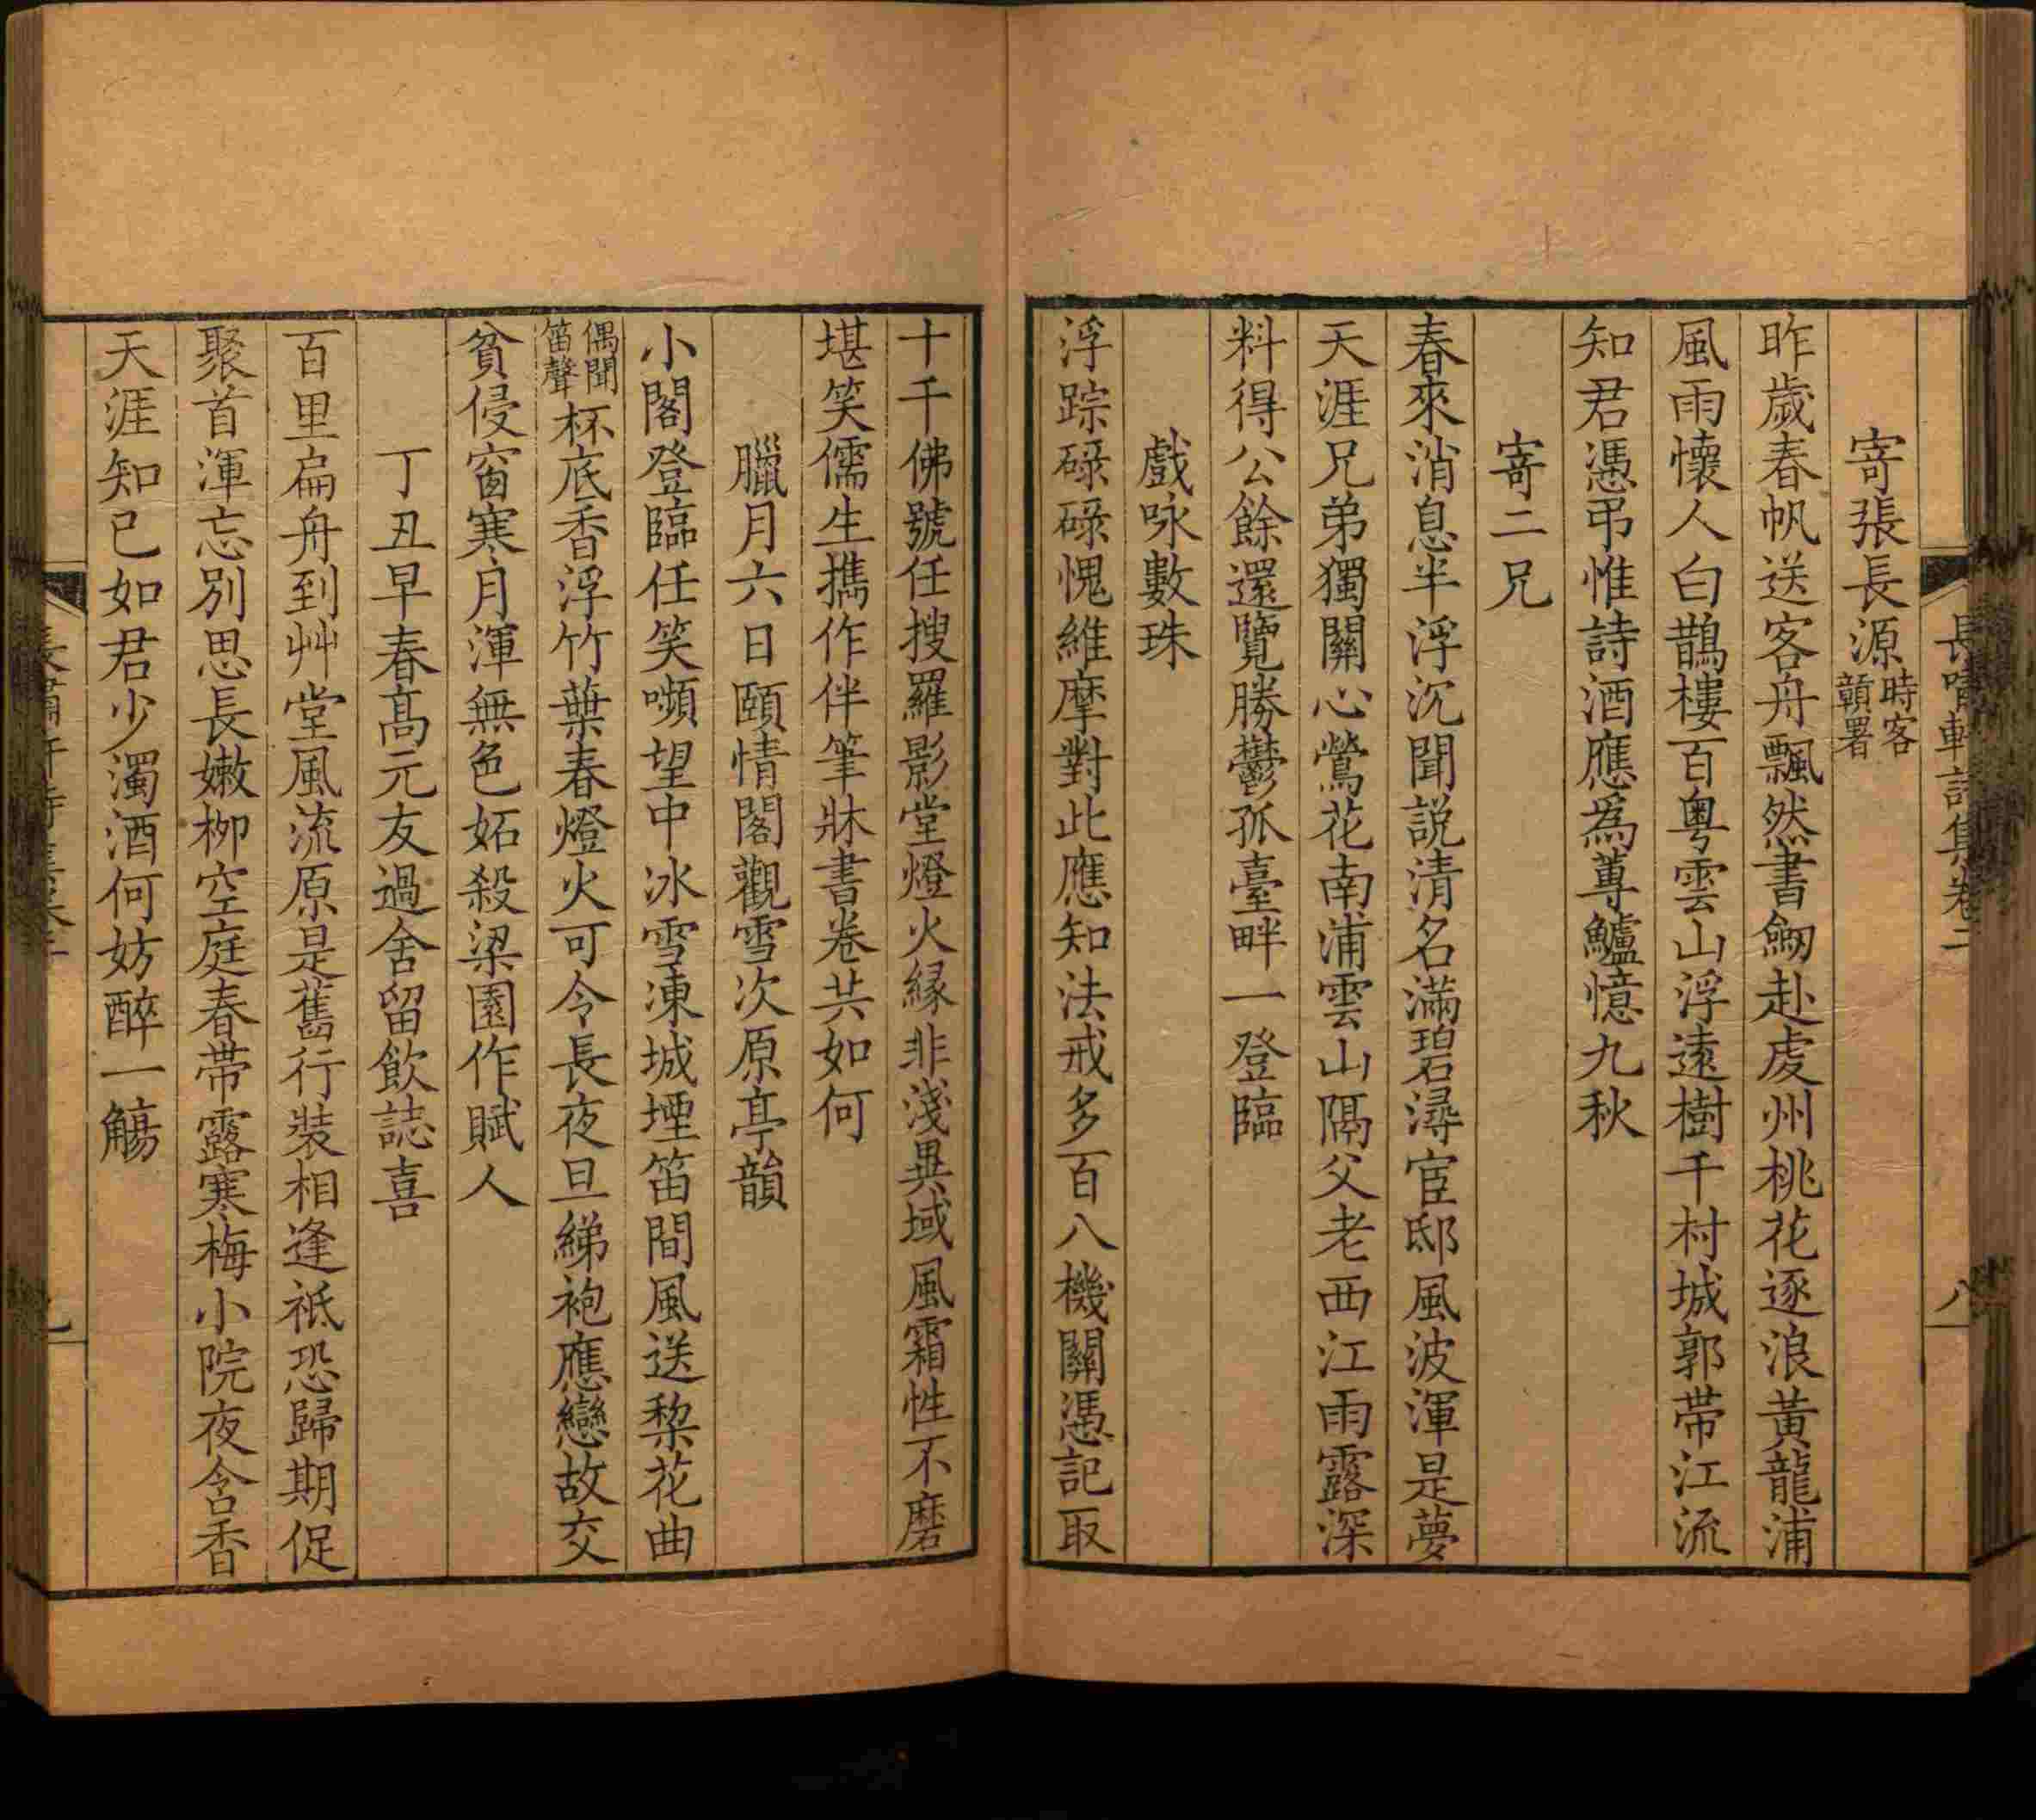 長嘯軒詩集卷二 八
寄張長源時客贛署
昨歲春帆送客舟飄然書劒赴虔州桃花逐浪黃龍浦
風雨懷人白鵲樓百粤雲山浮遠樹千村城郭帶江流
知君憑弔惟詩酒應爲蓴鱸憶九秋
寄二兄
春來消息半浮沉聞説清名滿碧潯宦邸風波渾是夢
天涯兄弟獨關心鶯花南浦雲山隔父老西江雨露深
料得公餘還覽勝鬱孤臺畔一登臨
戲咏數珠
浮踪碌碌愧維摩對此應知法戒多百八機關憑記取
十千佛號任搜羅影堂燈火縁非淺異域風霜性不磨
堪笑儒生攜作伴筆牀書卷共如何
臘月六日頤情閣觀雪次原亭韻
小閣登臨任笑嚬望中冰雪凍城堙笛間風送棃花曲
偶聞笛聲杯底香浮竹葉春燈火可令長夜旦綈袍應戀故交
貧侵窗寒月渾無色妬殺梁園作賦人
丁丑早春高元友過舍留飲誌喜
百里扁舟到艸堂風流原是舊行裝相逢祗恐歸期促
聚首渾忘別思長嫩柳空庭春帶露寒梅小院夜含香
天涯知已如君少濁酒何妨醉一觴